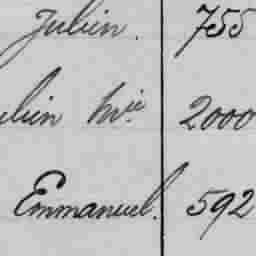 Julien. 755
ulien Mie 2000
Emmanuel. 592